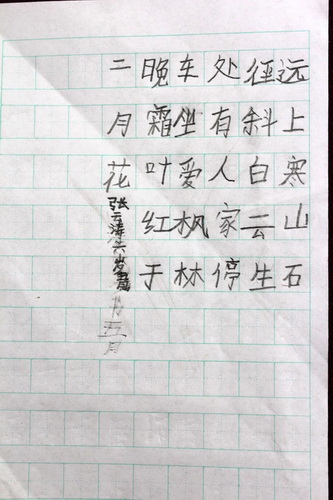 远上寒山石
径斜白云生
处有人家停
车坐爱枫林
晚霜叶红于
二月花
张云涛六岁书五月